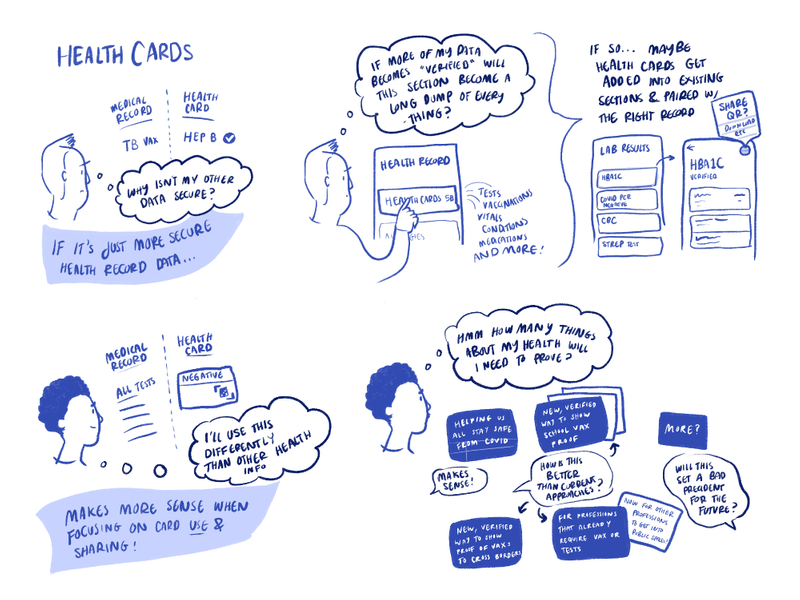 HEALTH CARDS
MEDICAL
RECORD
HEALTH
CARD
TB VAX
HEP B
WHY ISN'T MY OTHER
DATA SECURE?
IF IT'S JUST MORE SECURE
HEALTH RECORD DATA...
IF MORE OF MY DATA
BECOMES "VERIFIED" WILL
THIS SECTION BECOME A
LONG DUMP OF EVERY
THING?
HEALTH RECORD
HEALTH CARDS 58
TESTS
VACCINATIONS
VITALS
CONDITIONS
MEDICATIONS
AND MORE!
IF SO... MAYBE
HEALTH CARDS GET
ADDED INTO EXISTING
SECTIONS & PAIRED W/
THE RIGHT RECORD
SHARE
QR?
DOWNLOAD
LAB RESULTS
HBA1C
COVID PCR
CBC
STREP TEST
HBA1C
VERIFIED
MEDICAL
RECORD
HEALTH
CARD
ALL TESTS
NEGATIVE
I'LL USE THIS
DIFFERENTLY
THAN OTHER HEALTH
INFO
MAKES MORE SENSE WHEN
FOCUSING ON CARD USE &
SHARING!
HMM HOW MANY THINGS
ABOUT MY HEALTH WILL
I NEED TO PROVE?
HELPING US
ALL STAY SAFE
FROM COVID
NEW, VERIFIED
WAY TO SHOW
SCHOOL VAX
PROOF
MORE?
MAKES
SENSE!
HOW IS THIS
BETTER
THAN CURRENT
APPROACHES?
WILL THIS
SET A BAD
PRECIDENT
FOR THE
FUTURE?
NEW, VERIFIED
WAY TO SHOW
PROOF OF VAXS
TO CROSS BORDERS
FOR PROFESSIONS
THAT ALREADY
REQUIRE VAX OR
TESTS
NOW FOR OTHER
PROFESSIONS
TO GET INTO
PUBLIC SPACES!